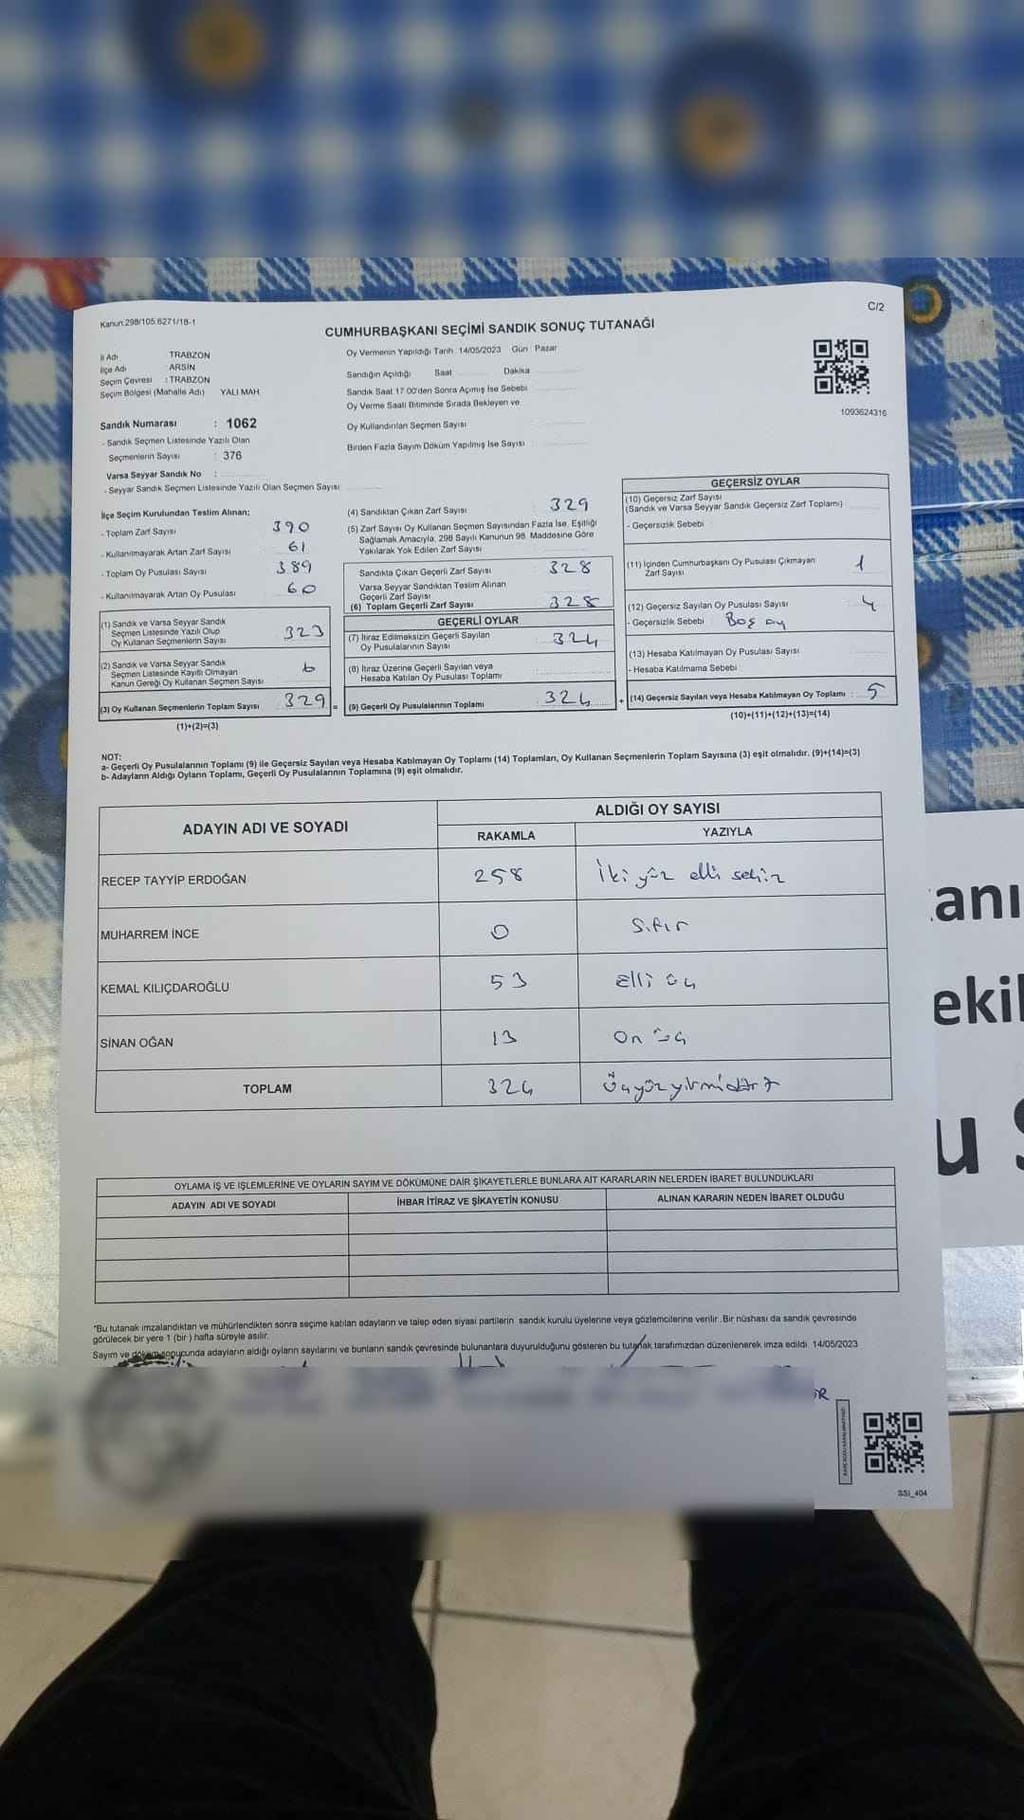 Kanun:298/105.6271/18-1
C/2
CUMHURBAŞKANI SEÇİMİ SANDIK SONUÇ TUTANAĞI
İl Adı TRABZON
İlçe Adı ARSİN
Seçim Çevresi : TRABZON
Seçim Bölgesi (Mahalle Adı) YALI MAH
Oy Vermenin Yapıldığı Tarih 14/05/2023 Gün : Pazar
Sandığın Açıldığı Saat Dakika
Sandık Saat 17.00'den Sonra Açımış İse Sebebi
Oy Verme Saati Bitiminde Sırada Bekleyen ve
Oy Kullandırılan Seçmen Sayısı
Birden Fazla Sayım Döküm Yapılmış İse Sayısı
1093624316
Sandık Numarası : 1062
- Sandık Seçmen Listesinde Yazılı Olan
Seçmenlerin Sayısı : 376
Varsa Seyyar Sandık No :
- Seyyar Sandık Seçmen Listesinde Yazılı Olan Seçmen Sayısı
İlçe Seçim Kurulundan Teslim Alınan;
- Toplam Zarf Sayısı 390
- Kullanılmayarak Artan Zarf Sayısı 61
- Toplam Oy Pusulası Sayısı 389
- Kullanılmayarak Artan Oy Pusulası 60
(1) Sandık ve Varsa Seyyar Sandık
Seçmen Listesinde Yazılı Olup
Oy Kullanan Seçmenlerin Sayısı 323
(2) Sandık ve Varsa Seyyar Sandık
Seçmen Listesinde Kayıtlı Olmayan
Kanun Gereği Oy Kullanan Seçmen Sayısı 6
(3) Oy Kullanan Seçmenlerin Toplam Sayısı 329
(1)+(2)=(3)
(4) Sandıktan Çıkan Zarf Sayısı 329
(5) Zarf Sayısı Oy Kullanan Seçmen Sayısından Fazla İse, Eşitliği
Sağlamak Amacıyla, 298 Sayılı Kanunun 98. Maddesine Göre
Yakılarak Yok Edilen Zarf Sayısı
Sandıkta Çıkan Geçerli Zarf Sayısı 328
Varsa Seyyar Sandıktan Teslim Alınan
Geçerli Zarf Sayısı
(6) Toplam Geçerli Zarf Sayısı 328
GEÇERLİ OYLAR
(7) İtiraz Edilmeksizin Geçerli Sayılan
Oy Pusulalarının Sayısı 324
(8) İtiraz Üzerine Geçerli Sayılan veya
Hesaba Katılan Oy Pusulası Toplamı
= (9) Geçerli Oy Pusulalarının Toplamı 324 +
GEÇERSİZ OYLAR
(10) Geçersiz Zarf Sayısı
(Sandık ve Varsa Seyyar Sandık Geçersiz Zarf Toplamı)
- Geçersizlik Sebebi
(11) İçinden Cumhurbaşkanı Oy Pusulası Çıkmayan
Zarf Sayısı 1
(12) Geçersiz Sayılan Oy Pusulası Sayısı 4
- Geçersizlik Sebebi Boş oy
(13) Hesaba Katılmayan Oy Pusulası Sayısı
- Hesaba Katılmama Sebebi
(14) Geçersiz Sayılan veya Hesaba Katılmayan Oy Toplamı : 5
(10)+(11)+(12)+(13)=(14)
NOT:
a- Geçerli Oy Pusulalarının Toplamı (9) ile Geçersiz Sayılan veya Hesaba Katılmayan Oy Toplamı (14) Toplamları, Oy Kullanan Seçmenlerin Toplam Sayısına (3) eşit olmalıdır. (9)+(14)=(3)
b- Adayların Aldığı Oyların Toplamı, Geçerli Oy Pusulalarının Toplamına (9) eşit olmalıdır.
ADAYIN ADI VE SOYADI
ALDIĞI OY SAYISI
RAKAMLA YAZIYLA
RECEP TAYYİP ERDOĞAN 258 İki yüz elli sekiz
MUHARREM İNCE 0 Sıfır
KEMAL KILIÇDAROĞLU 53 Elli üç
SİNAN OĞAN 13 On üç
TOPLAM 324 Üçyüzyirmidört
OYLAMA İŞ VE İŞLEMLERİNE VE OYLARIN SAYIM VE DÖKÜMÜNE DAİR ŞİKAYETLERLE BUNLARA AİT KARARLARIN NELERDEN İBARET BULUNDUKLARI
ADAYIN ADI VE SOYADI İHBAR İTİRAZ VE ŞİKAYETİN KONUSU ALINAN KARARIN NEDEN İBARET OLDUĞU
*Bu tutanak imzalandıktan ve mühürlendikten sonra seçime katılan adayların ve talep eden siyasi partilerin sandık kurulu üyelerine veya gözlemcilerine verilir. Bir nüshası da sandık çevresinde
görülecek bir yere 1 (bir) hafta süreyle asılır.
Sayım ve döküm sonucunda adayların aldığı oyların sayılarını ve bunların sandık çevresinde bulunanlara duyurulduğunu gösteren bu tutanak tarafımızdan düzenlenerek imza edildi. 14/05/2023
SSI_404
anı
ekil
u S